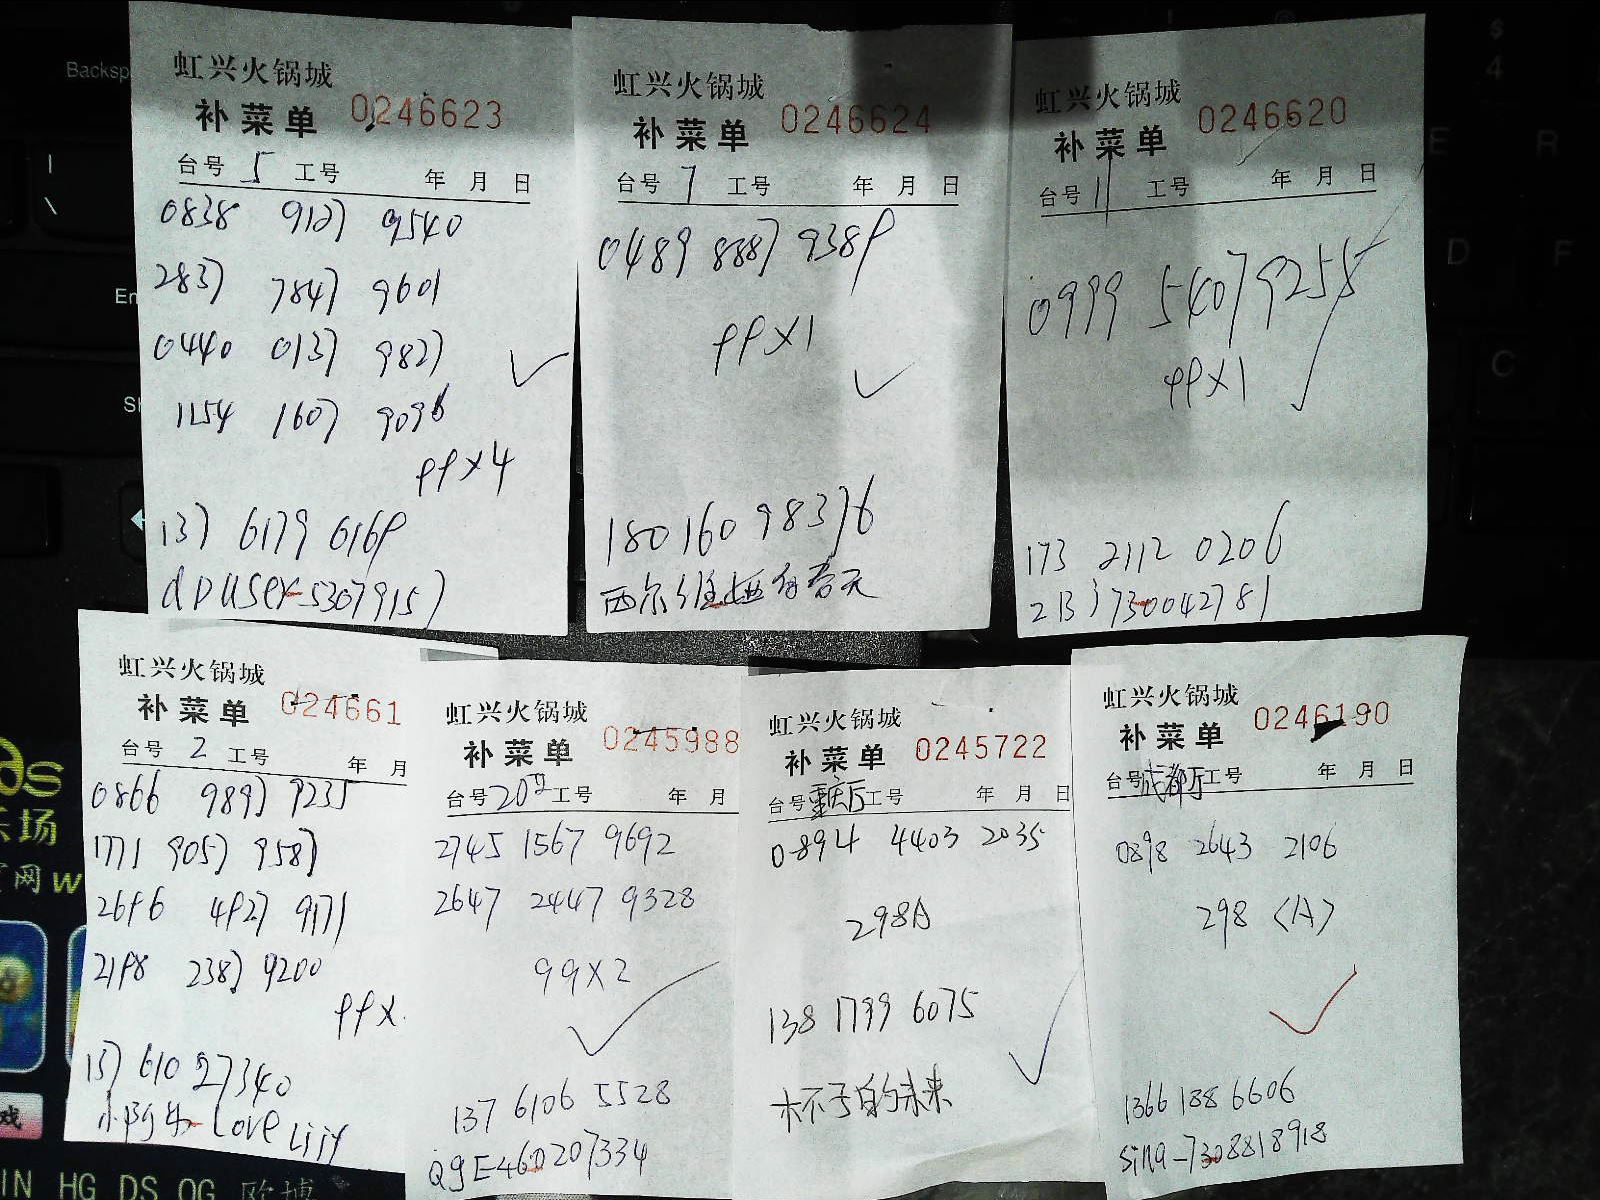 虹兴火锅城
补菜单 0246623
台号 5 工号 年 月 日
0838 9127 9540
2837 7847 9601
0440 0137 9827
1154 1607 9096
99×4
137 6179 6169
dpuser-53079157
虹兴火锅城
补菜单 0246624
台号 7 工号 年 月 日
0489 8887 9389
99×1
180 160 98376
西尔维娅的春天
虹兴火锅城
补菜单 0246620
台号 11 工号 年 月 日
0999 5407 9255
99×1
173 2112 0206
虹兴火锅城
补菜单 024661
台号 2 工号 年 月
0866 9897 9235
1771 9057 9587
2696 4927 9171
2198 2387 9200
99×
137 610 27340
Love
虹兴火锅城
补菜单 0245988
台号 20 工号 年 月
2745 1567 9692
2647 2447 9328
99×2
137 6106 5528
QgE460207334
虹兴火锅城
补菜单 0245722
台号 重庆厅 工号 年 月 日
0894 4403 2035
298A
138 1799 6075
杯子的未来
虹兴火锅城
补菜单 0246190
台号 成都厅 工号 年 月 日
0898 2643 2106
298 <A>
1366 188 6606
sina-7308818918
Backsp
\
En
Sh
E
R
D
F
C
$
4
as
乐场
网w
戏
IN HG DS OG 欧博